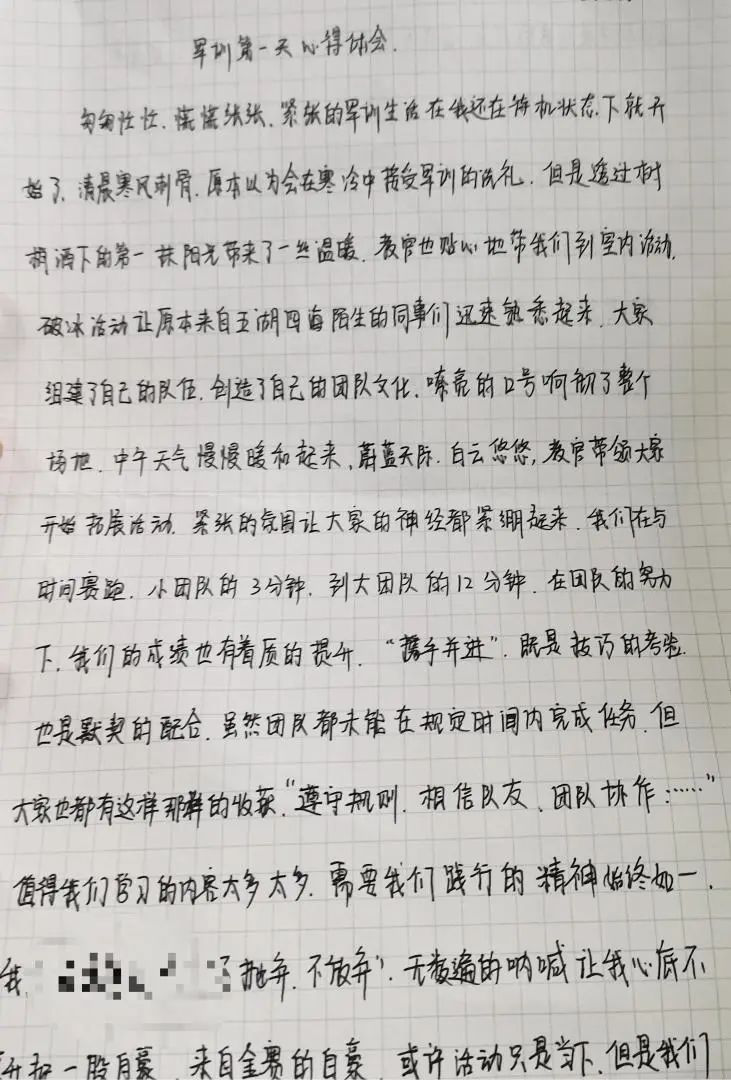 军训第一天心得体会.
匆匆忙忙、慌慌张张、紧张的军训生活在我还在待机状态下就开
始了、清晨寒风刺骨、原本以为会在寒冷中接受军训的洗礼、但是透过树
梢洒下的第一抹阳光带来了一丝温暖、教官也贴心地带我们到室内活动,
破冰活动让原本来自五湖四海陌生的同事们迅速熟悉起来、大家
组建了自己的队伍、创造了自己的团队文化、嘹亮的口号响彻了整个
场地、中午天气慢慢暖和起来,蔚蓝天际、白云悠悠,教官带领大家
开始拓展活动、紧张的氛围让大家的神经都紧绷起来、我们在与
时间赛跑、小团队的3分钟、到大团队的12分钟、在团队的努力
下、我们的成绩也有着质的提升、“携手并进”、既是技巧的考验、
也是默契的配合、虽然团队都未能在规定时间内完成任务、但
大家也都有这样那样的收获,“遵守规则、相信队友、团队协作:……”
值得我们学习的内容太多太多、需要我们践行的精神始终如一、
我、 抛弃、不放弃”、无数遍的呐喊让我心底不
升起一股自豪、来自金赛的自豪、或许活动只是当下、但是我们